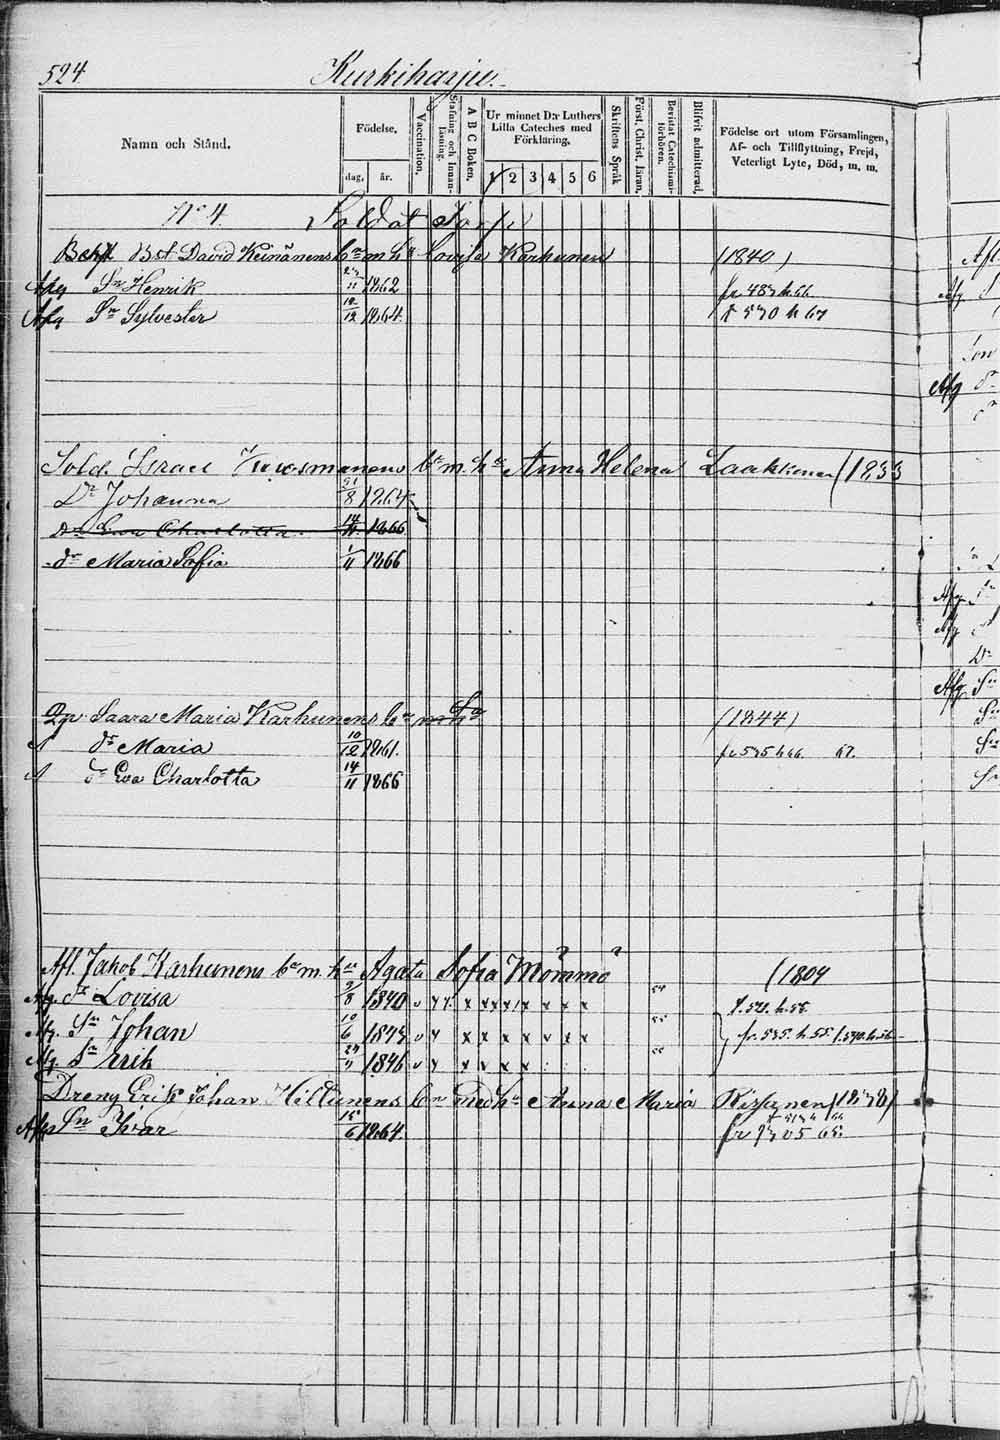 524
Kurkiharju.
Namn och Stånd.
Födelse.
dag. år.
Vaccination.
Stafning och Innan-läsning.
A B C Boken.
Ur minnet D:r Luthers Lilla Cateches med Förklaring,
1 2 3 4 5 6
Skriftens Språk
Först. Christ. läran.
Bevistat Catechismi-förhören.
Blifvit admitterad.
Födelse ort utom Församlingen, Af- och Tillflyttning, Frejd, Veterligt Lyte, Död, m. m.
No 4. Soldat Torp
Bst David Keinänens bn m hu Lovisa Karhunen (1840)
Afg Sn Henrik 11 1862 fr 483 h. 66
Afg Sn Sylvester 10/12 1864 f 570 h 67
Sold. Israel Kuosmanens bn m. hu Anna Helena Laakkonen (1833
Dr Johanna 21/8 1264
Dr Eva Charlotta 14/11 1866
dr Maria Sofia 1/11 1866
Saara Maria Karhunens bn m hu (1844)
A dr Maria 10/12 1861. fr 535 h 66 67.
A dr Eva Charlotta 14/11 1866
Afl. Jakob Karhunens bn m. hu Agata Sofia Mömmö (1809
Afg. dr Lovisa 9/8 1840 v y y x x x x x x x x 54 f. 521. h. 58.
Afg. Sn Johan 10/6 1843 v y x x x x v x x 55 fr. 535. h. 58. f. 540. h. 56
Afg Sn Erik 1846 v y x v x x
Dreng Erik Johan Hiltunens bn med hu Anna Maria (1838)
Afg Sn Ivar 15/6 1864. fr 65.